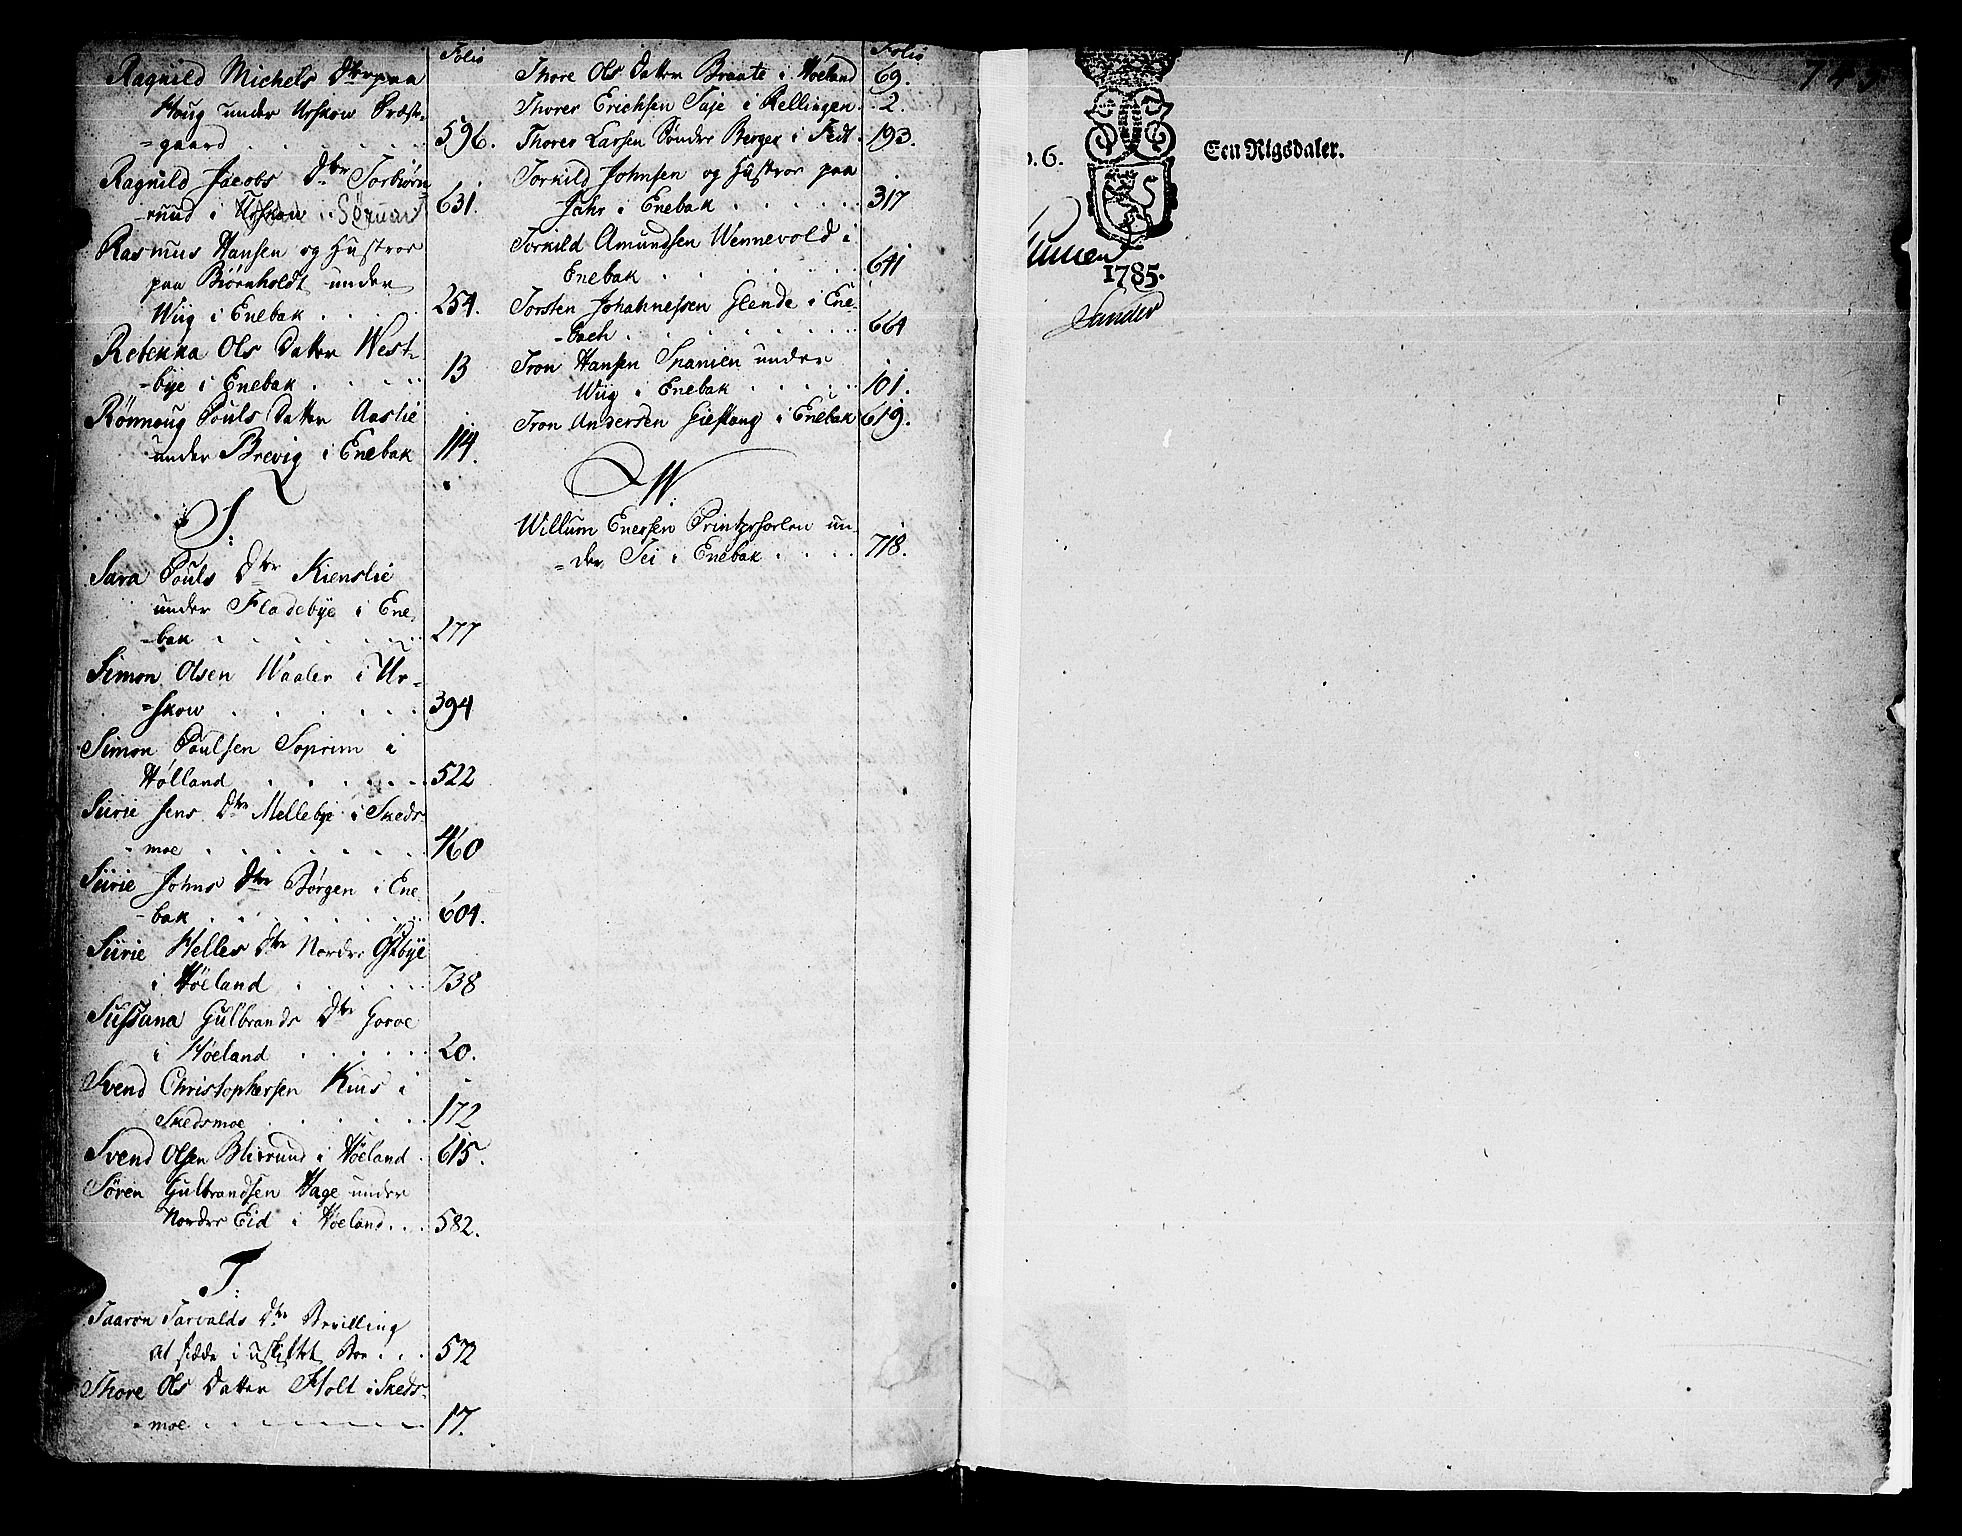 Folio
Ragnild Michels Dtr paa
Houg under Urskow Præste-
=gaard . . . . . . 596.
Ragnild Jacobs Dtr Torbiørn
=ruud i Urskow i Sørum 631.
Rasmus Hansen og Hustroe
paa Biørnholdt under
Wiig i Enebak . . . . 254.
Rebekka Ols Datter West-
=bye i Enebak . . . . 13
Rønnoug Pouls Datter Aaslie
under Brevig i Enebak 114.
S:
Sara Pouls Dtr Kienslie
under Fladebye i Ene-
=bak . . . . . . . 277
Simon Olsen Waaler i Ur-
=skow . . . . . . 394
Simon Poulsen Soprim i
Hølland . . . . . 522
Siirie Jens Dtr Mellebye i Skeds-
=moe . . . . . . . 460
Siirie Johns Dtr Børgen i Ene
=bak . . . . . . . 604.
Siirie Helles Dtr Nordre Østbye
i Høeland . . . . . 738
Sussana Gulbrands Dtr Goroe
i Høeland . . . . . 20.
Svend Christophersen Kius i
Skedsmoe . . . . . 172
Svend Olsen Blixrund i Høeland . 615.
Søren Gulbrandsen Hage under
Nordre Eid i Høeland . . . 582.
T:
Taaron Tarvalds Dtr Bevilling
at sidde i uskiftet Boe . . . 572
Thore Ols Datter Holt i Skeds-
=moe . . . . . . . 17.
Folio
Thore Ols Datter Braate i Høeland 69.
Thorer Erichsen Taje i Rellingen . . 2.
Thorer Larsen Sønder Berger i Fedt . 193.
Torkild Johnsen og Hustroe paa
Jahr i Enebak . . . . . . 317
Torkild Amundsen Wennevold i
Enebak . . . . . . . 641
Torsten Johannessen Glende i Ene-
=bach . . . . . . . . 664
Tron Hansen Spanien under
Wiig i Enebak . . . . . 101.
Tron Andersen Giestang i Enebak 619.
W:
Willum Enersen Printzhorlen un-
=der Tei i Enebak . . . . 718.
743
o. 6.
Een Rigsdaler.
1785.
Sander